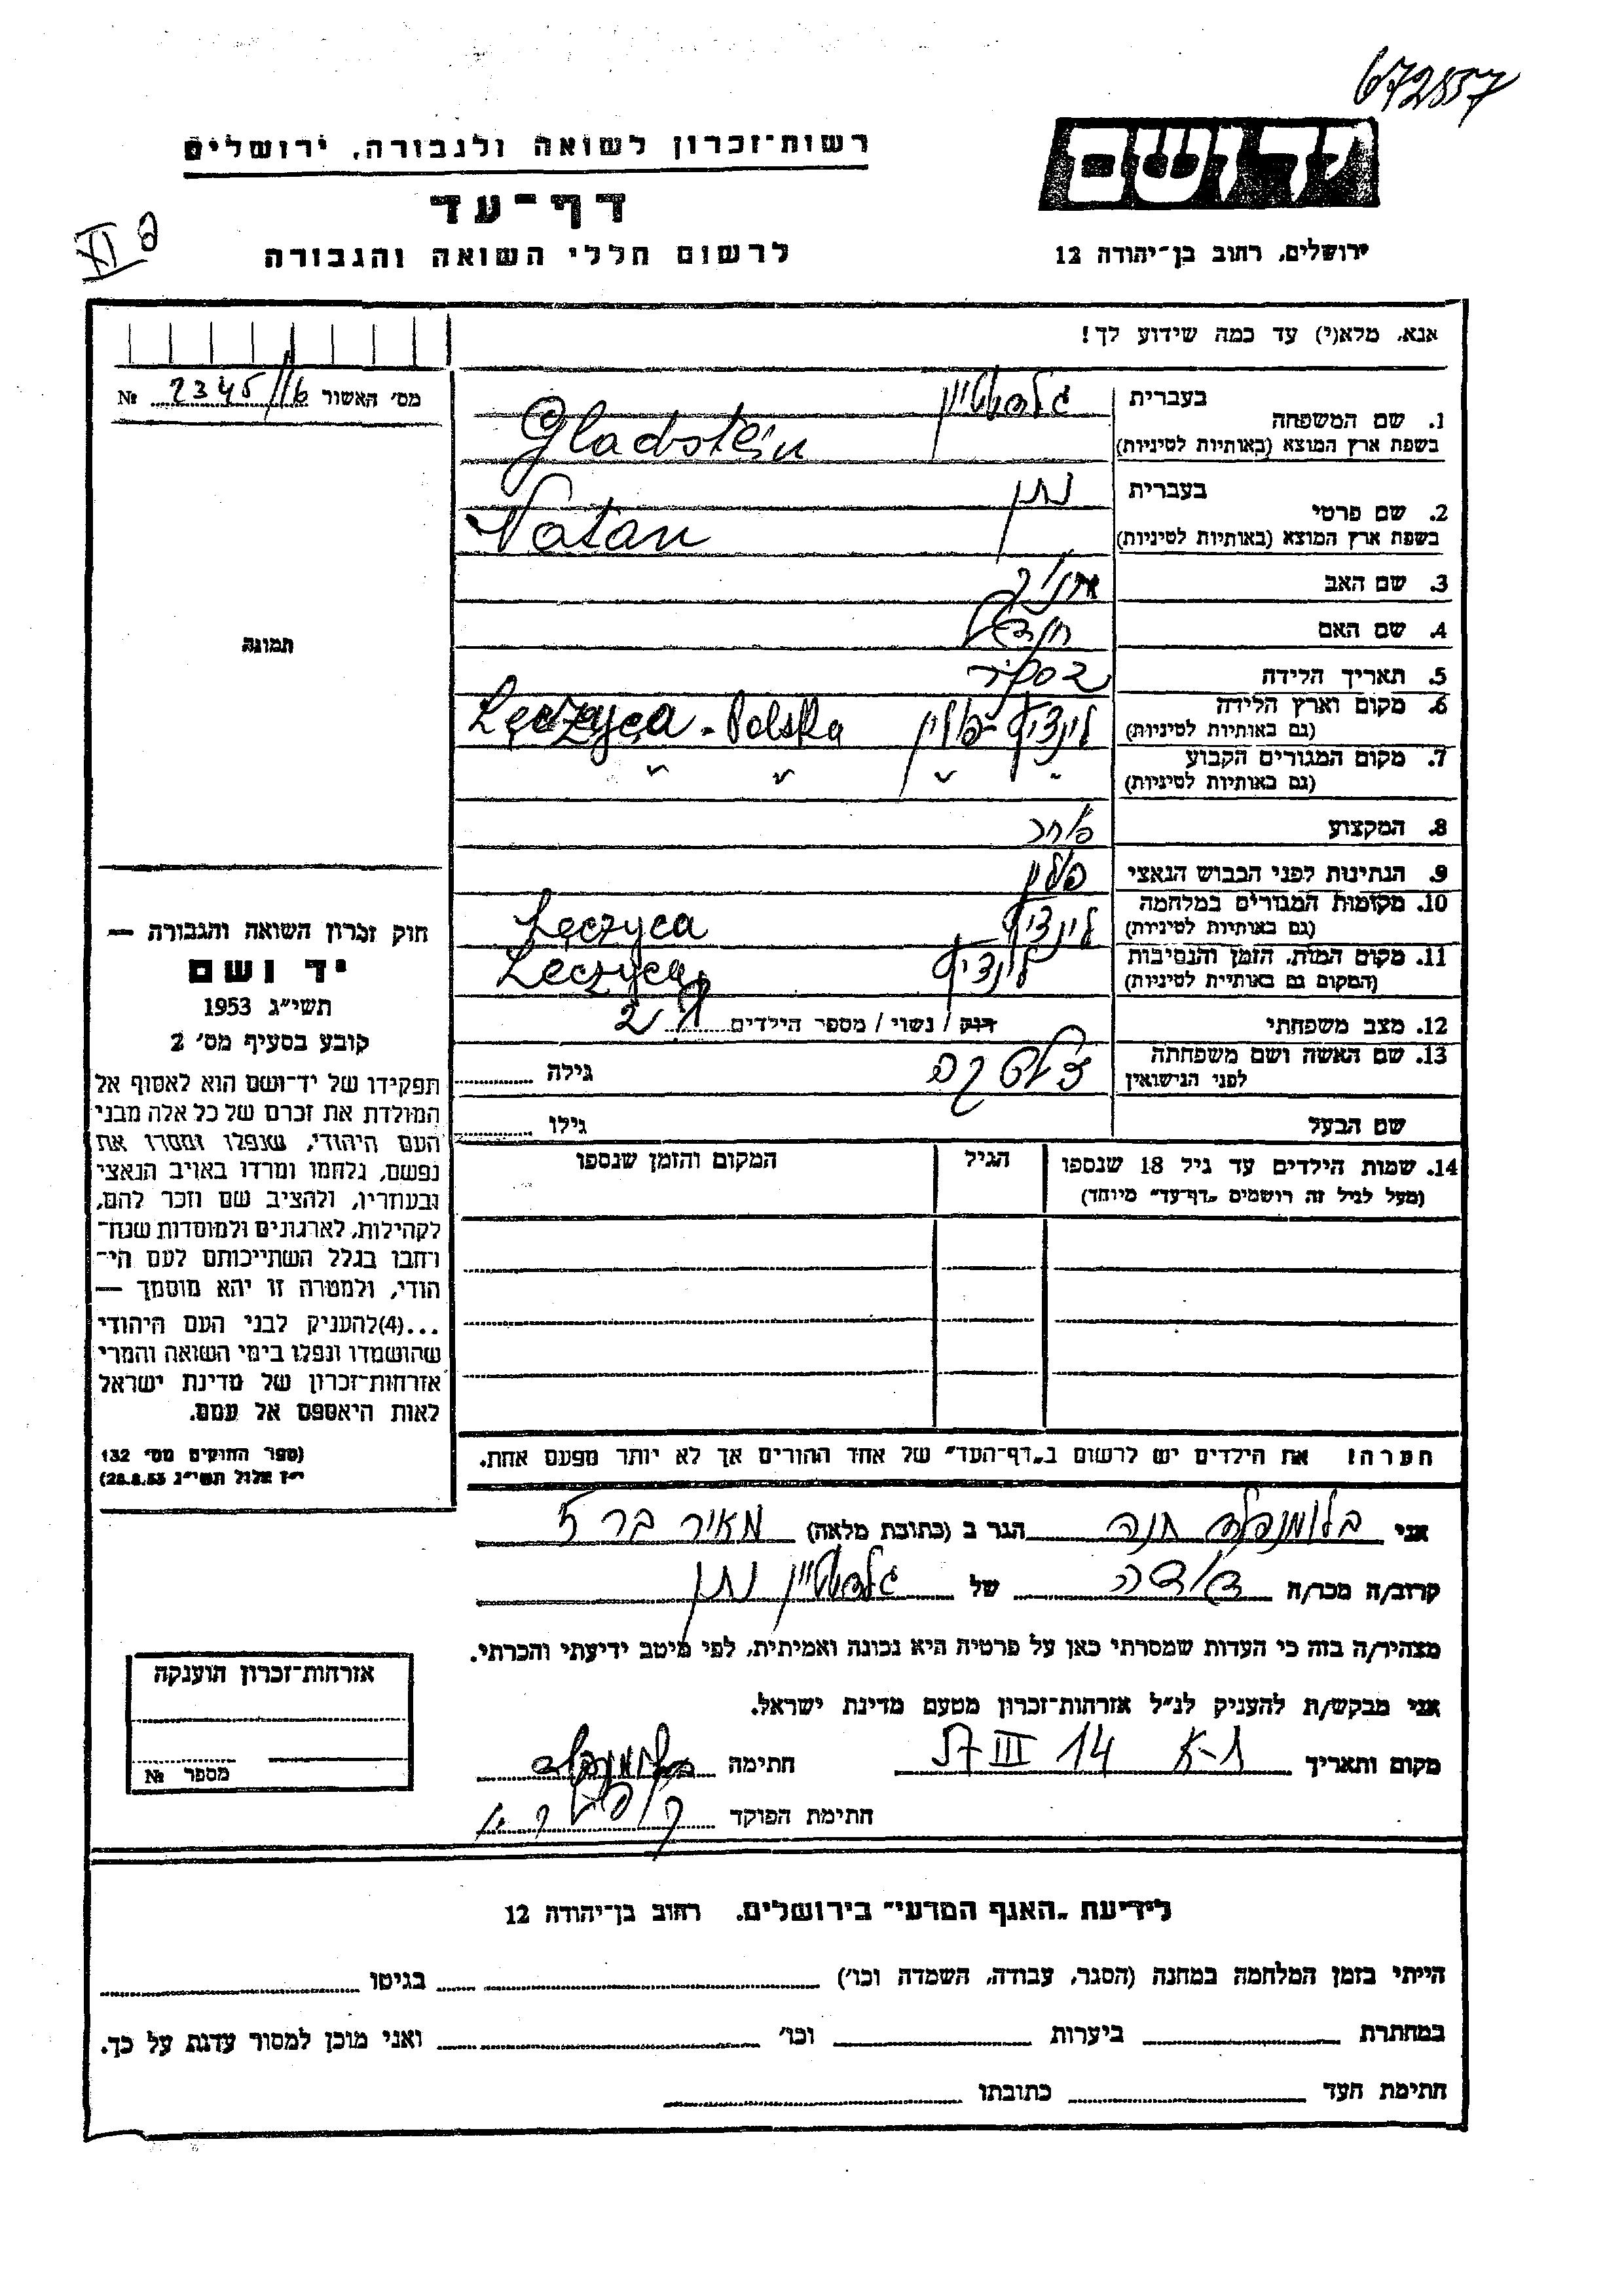 672557
רשות־זכרון לשואה ולגבורה, ירושלים
יד ושם
דף־עד
לרשום חללי השואה והגבורה
ירושלים, רחוב בן־יהודה 12
אנא, מלא(י) עד כמה שידוע לך!
מס׳ האשור 2345/16 №
1. שם המשפחה
בעברית גלדשטיין
בשפת ארץ המוצא (באותיות לטיניות) Gladstein
2. שם פרטי
בעברית נתן
בשפת ארץ המוצא (באותיות לטיניות) Natan
3. שם האב
4. שם האם
תמונה
5. תאריך הלידה
6. מקום וארץ הלידה לינציץ - פולין Łęczyca - Polska
(גם באותיות לטיניות)
7. מקום המגורים הקבוע
(גם באותיות לטיניות)
8. המקצוע
9. הנתינות לפני הכבוש הנאצי פולין
10. מקומות המגורים במלחמה לינציץ Łęczyca
(גם באותיות לטיניות)
11. מקום המות, הזמן והנסיבות לינציץ Łęczyca
(המקום גם באותיות לטיניות)
12. מצב משפחתי רווק / נשוי / מספר הילדים 2
13. שם האשה ושם משפחתה
לפני הנישואין
גילה
שם הבעל גילו
14. שמות הילדים עד גיל 18 שנספו
(מעל לגיל זה רושמים „דף־עד״ מיוחד)
הגיל
המקום והזמן שנספו
חוק זכרון השואה והגבורה —
יד ושם
תשי״ג 1953
קובע בסעיף מס׳ 2
תפקידו של יד־ושם הוא לאסוף אל
המולדת את זכרם של כל אלה מבני
העם היהודי, שנפלו ומסרו את
נפשם, נלחמו ומרדו באויב הנאצי
ובעוזריו, ולהציב שם וזכר להם,
לקהילות, לארגונים ולמוסדות שנח־
רחבו בגלל השתייכותם לעם הי־
הודי, ולמטרה זו יהא מוסמך —
...(4)להעניק לבני העם היהודי
שהושמדו ונפלו בימי השואה והמרי
אזרחות־זכרון של מדינת ישראל
לאות היאספם אל עמם.
(ספר החוקים מס׳ 132
י״ז אלול תשי״ג 28.8.53)
הערה! את הילדים יש לרשום ב„דף־העד״ של אחד ההורים אך לא יותר מפעם אחת.
אני בלומנפלד חנה הגר ב (כתובת מלאה) מאיר בר 7
קרוב/ה מכר/ה דודה של גלדשטיין נתן
מצהיר/ה בזה כי העדות שמסרתי כאן על פרטיה היא נכונה ואמיתית, לפי מיטב ידיעתי והכרתי.
אני מבקש/ת להעניק לנ״ל אזרחות־זכרון מטעם מדינת ישראל.
מקום ותאריך ת-א 14 III 57 חתימה בלומנפלד
חתימת הפוקד
אזרחות־זכרון הוענקה
מספר №
לידיעת „האגף המדעי״ בירושלים, רחוב בן־יהודה 12
הייתי בזמן המלחמה במחנה (הסגר, עבודה, השמדה וכו׳) בגיטו
במחתרת ביערות וכו׳ ואני מוכן למסור עדות על כך.
חתימת העד כתובתו